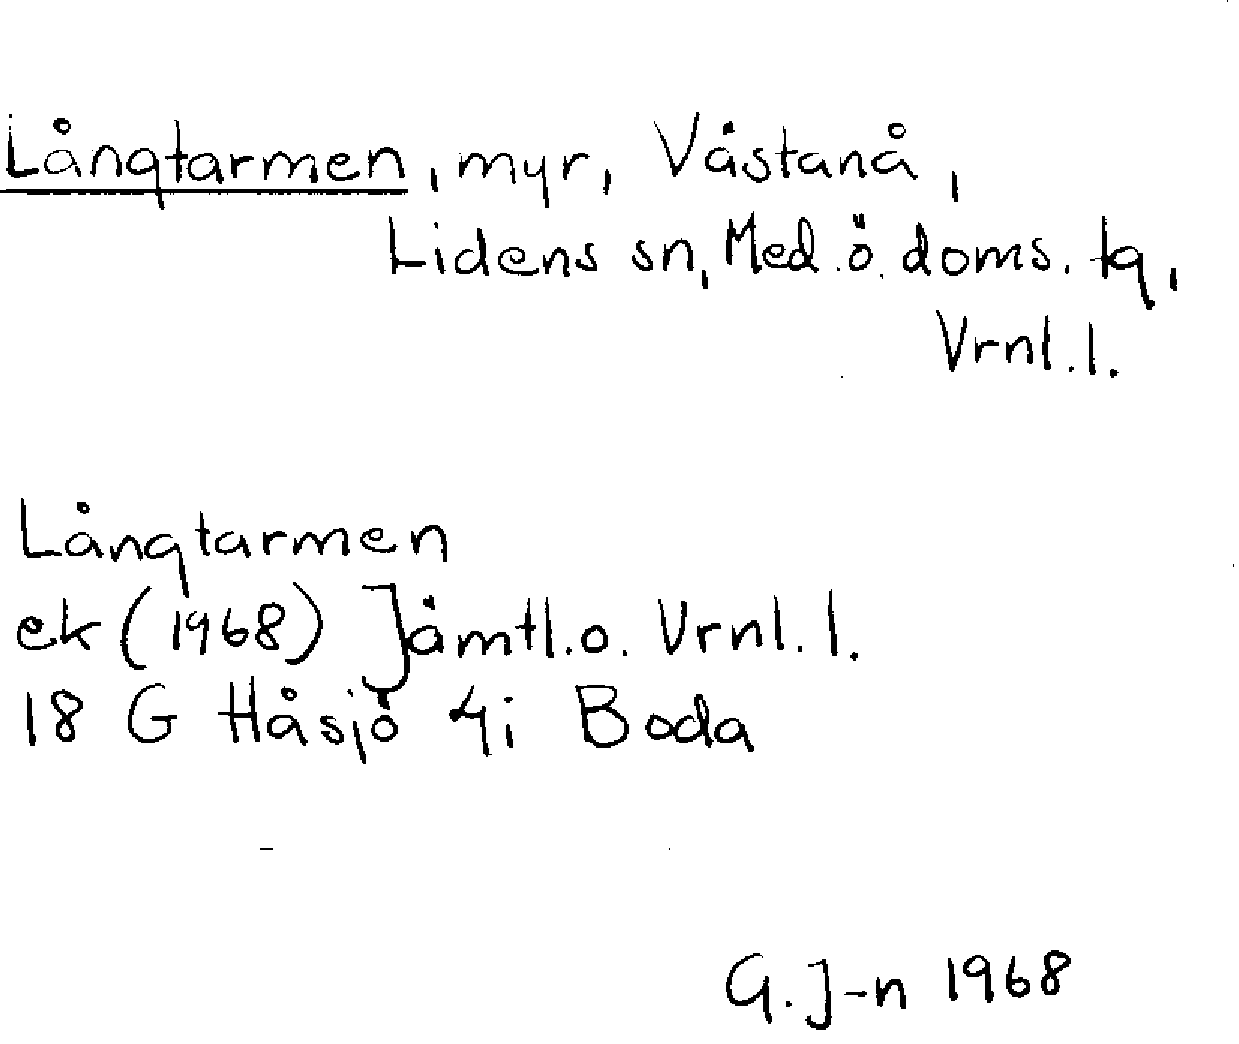 Långtarmen, myr, Västanå,
Lidens sn, Med. ö. doms. tg,
Vrnl. l.
Långtarmen
ek (1968) Jämtl. o. Vrnl. l.
18 G Håsjö 4i Boda
G. J-n 1968